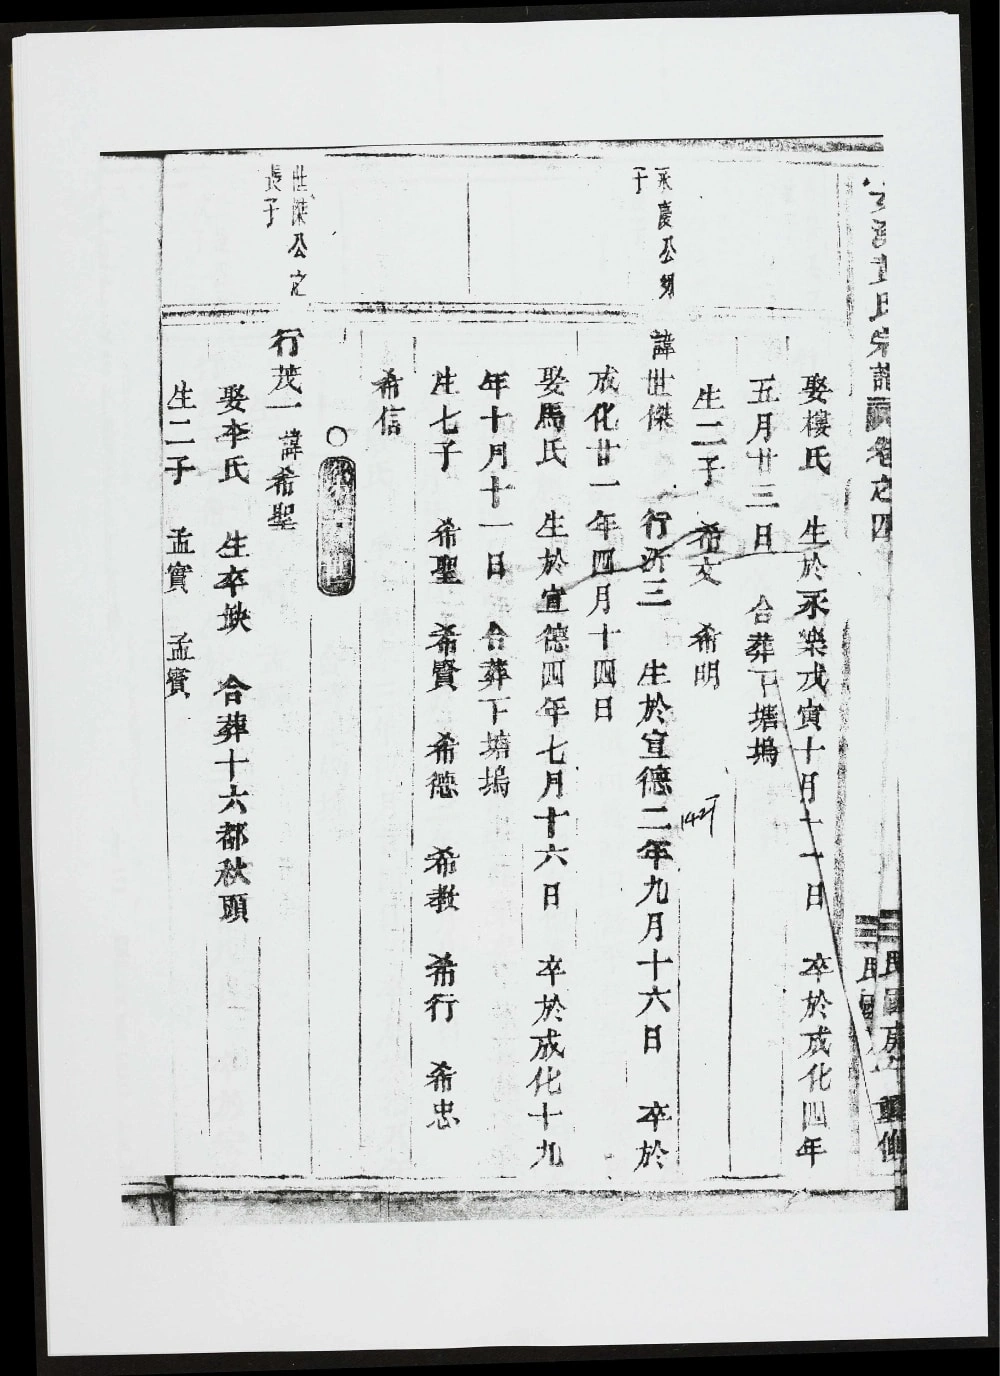 氏宗譜 卷之四
民國 年重修
娶樓氏 生於永樂戊寅十月十一日 卒於成化四年
五月廿三日 合葬下塘塢
生二子 希文 希明
永慶公幼
子
諱世傑 行沂三 生於宣德二年九月十六日 卒於
1427
成化廿一年四月十四日
娶馬氏 生於宣德四年七月十六日 卒於成化十九
年十月十一日 合葬下塘塢
生七子 希聖 希賢 希德 希教 希行 希忠
希信
世傑公之
長子
行茂一 諱希聖
娶李氏 生卒缺 合葬十六都秋頭
生二子 孟實 孟賓